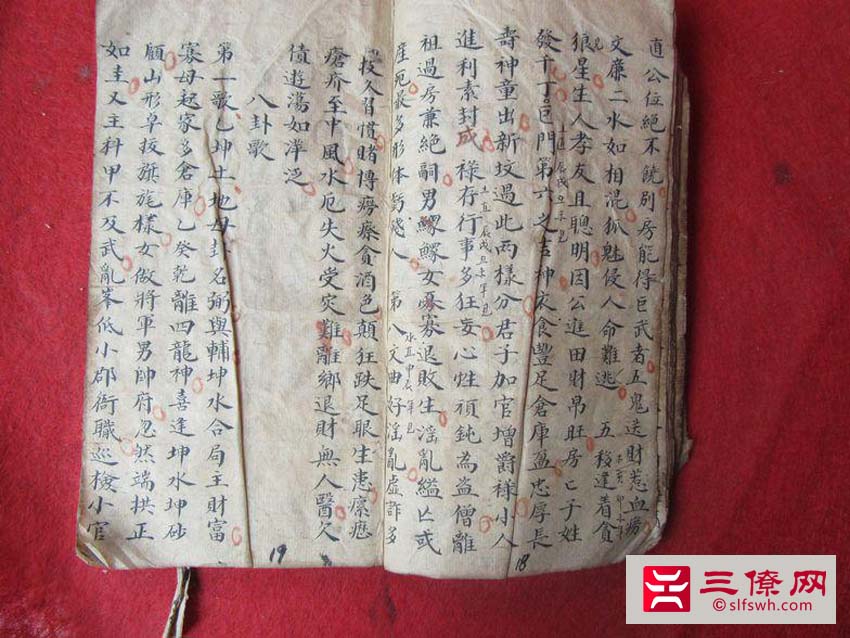 直公位絕不饒別房能得巨武者五鬼送財惹血癆
文廉二水如相混狐魁侵人命難逃 五移達着貪
狼星生人孝友且聰明因公進田財帛旺房亡子姓
發千丁巨門第六之吉神衣食豐足倉庫盈忠厚長
壽神童出新坟過此兩樣分君子加官增爵祿小人
進利素封成 祿存行事多狂妄心性頑鈍為盜僧離
祖過房兼絕嗣男鰥女寡退敗生淫亂縊亡或
產厄最多形体人 第八文曲好淫亂虛詐多
投久習慣賭博癆瘵貪酒色顛狂跌足眼生患瘰癧
瘡疥至中風水厄失火受災難離鄉退財無人醫久
債遊蕩如萍泛
八卦歌
第一歌乙坤土地母卦名弼與輔坤水合局主財富
寡母起家多倉庫乙癸乾離四龍神喜逢坤水坤砂
頋山形卓拔旗旄樣女做將軍男帥府忽然端拱正
如圭又主科甲不及武亂峯低小郡衙職巡檢小官
19
18
三僚网
©slfswh.com